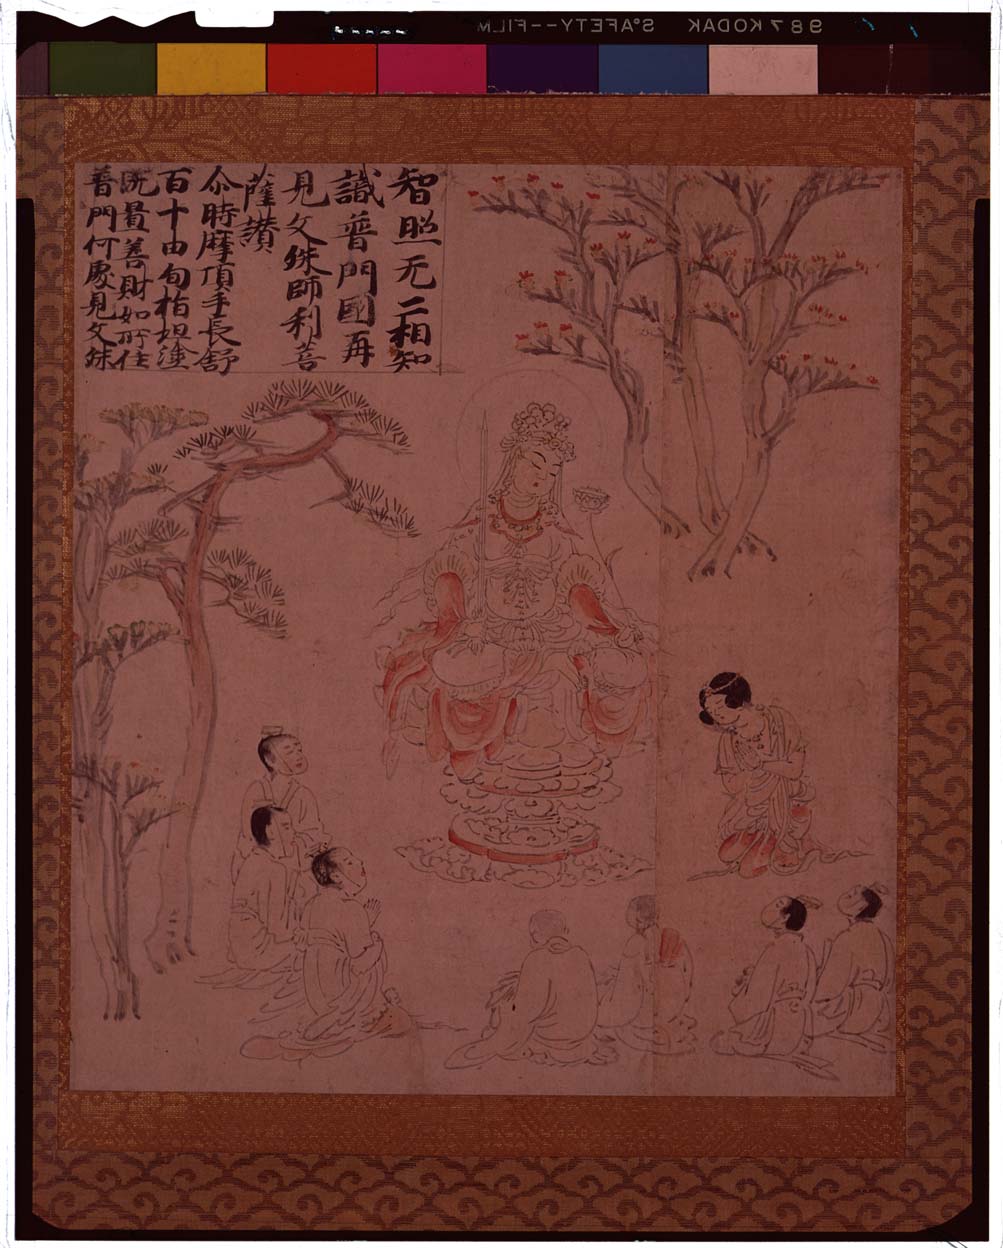 987 KODAK S°AFETY--FILM
智照无二相知
識普門國再
見文殊師利菩
薩讃
尒時摩頂手長舒
百十由旬栴坦塗
既量善財如所住
普門何處見文殊